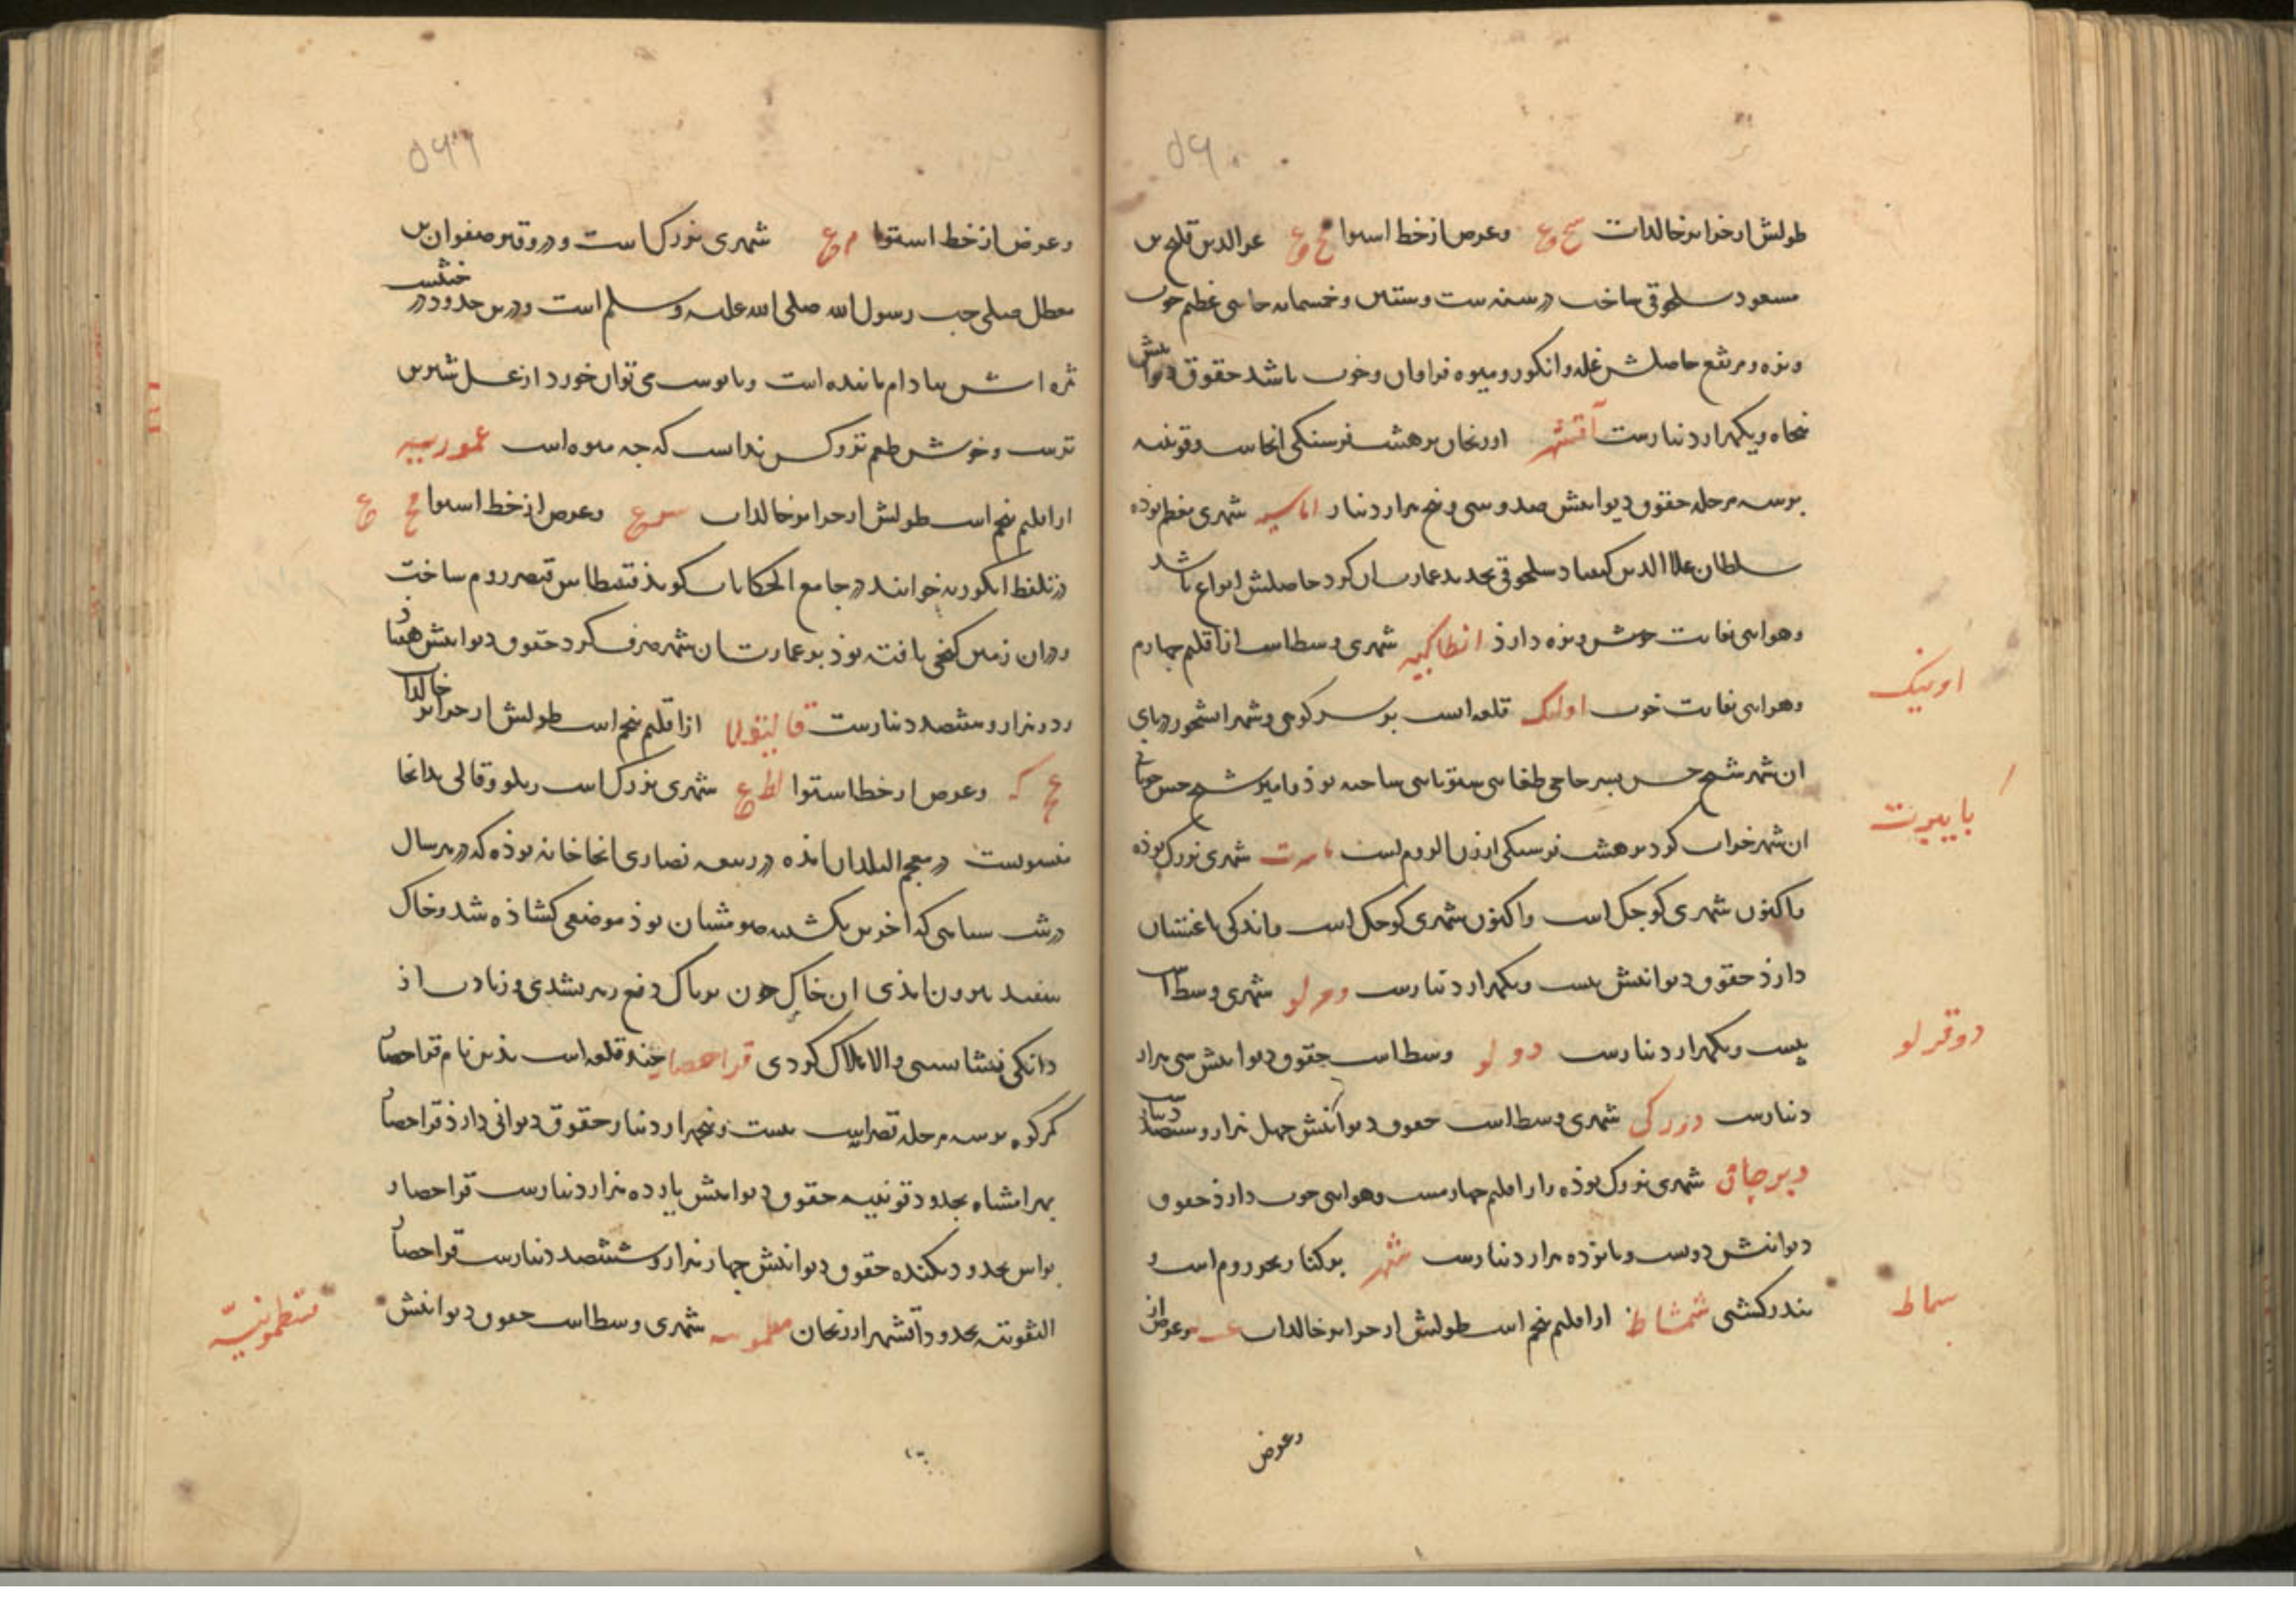 طولش از جزایر خالدات سح وع وعرض از خط استوا مح وع عزالدین قلج بن
مسعود سلجوقی ساخت در سنه ست وستین وخمسمایه جایی عظیم خوب
ونزه ومرتفع حاصلش غله وانکور ومیوه فراوان وخوب باشد حقوق دیوانیش
پنجاه ویکهزار دینارست آقشهر ارزنجان بر هشت فرسنکی انجاست وقونیه
بر سه مرحله حقوق دیوانیش صد وسی وپنج هزار دینار اماسیه شهری معظم بوده
سلطان علاالدین کیقباد سلجوقی تجدید عمارت ان کرد حاصلش انواع باشد
وهوایی بغایت خوش ونزه دارذ انطاکیه شهری وسطاست از اقلیم چهارم
وهوایی بغایت خوب اونیک قلعه است بر سر کوهی وشهر ابشخور در پای
ان شهر شیخ حسن پسر حاجی طغای سوتای ساخته بوذ وامیر شیخ حسن چوپانی
ان شهر خراب کرد بر هشت فرسنکی ارزن الروم است بابرت شهری بزرک بوذه
واکنون شهری کوجک است واکنون شهری کوجک است واندکی باغستان
دارذ حقوق دیوانیش بیست ویکهزار دینارست دوقرلو شهری وسط است
بیست ویکهزار دینارست دو لو وسط است حقوق دیوانیش سی هزار
دینارست دزرکی شهری وسط است حقوق دیوانیش چهل هزار وسیصد دینار
دیرجاق شهری بزرک بوذه واز اقلیم چهارمست وهوایی خوب دارذ حقوق
دیوانیش دویست وپانزده هزار دینارست شهر بر کنار بحر روم است و
بندر کشتی شمشاط از اقلیم پنجم است طولش از جزایر خالدات عـه وعرض از
وعرض
اونیک
بابیرت
دوقرلو
سماط
وعرض از خط استوا م ع شهری بزرک است ودرو قبر صفوان بن
معطل صلمی صاحب رسول الله صلی الله علیه وسلم است ودرین حدود درختیست
ثمره اش ببادام ماننده است وبا پوست می توان خورد از عسل شیرین
ترست وخوش طعم تر وکس نداست که چه میوه است عموریه
از اقلیم پنجم است طولش از جزایر خالدات سد ع وعرض از خط استوا مح ع
در تلفظ انکوریه خوانند در جامع الحکایات کویذ قسطاس قیصر روم ساخت
ودران زمین کنجی یافته بوذ بر عمارت ان شهر صرف کرد حقوق دیوانیش هفتا
ود دو هزار وششصد دینارست قالیقلا از اقلیم پنجم است طولش از جزایر خالدات
عح که وعرض از خط استوا لط ع شهری بزرک است وزیلو وقالی بدانجا
منسوبست در معجم البلدان امذه در بیعه نصاری انجا خانه بوذه که در هر سال
در شب سباسی که اخرین یکشنبه صومشان بوذ موضعی کشاذه شد وخاک
سفید بیرون امذی ان خاک چون تریاک دفع زهر بشدی وزیادت از
دانکی نشایستی والا هلاک کردی قراحصار چند قلعه است بذین نام قراحصار
کرکوه بر سه مرحله قیصریه بیست وپنجهزار دینار حقوق دیوانی دارذ قراحصار
بهرامشاه بحدود قونیه حقوق دیوانیش یازده هزار دینارست قراحصار
یواس بحدود نکنده حقوق دیوانیش چهار هزار وششصد دینارست قراحصار
التقونیه بحدود آقشهر ارزنجان قلمونیه شهری وسط است حقوق دیوانیش
قسطمونیّه